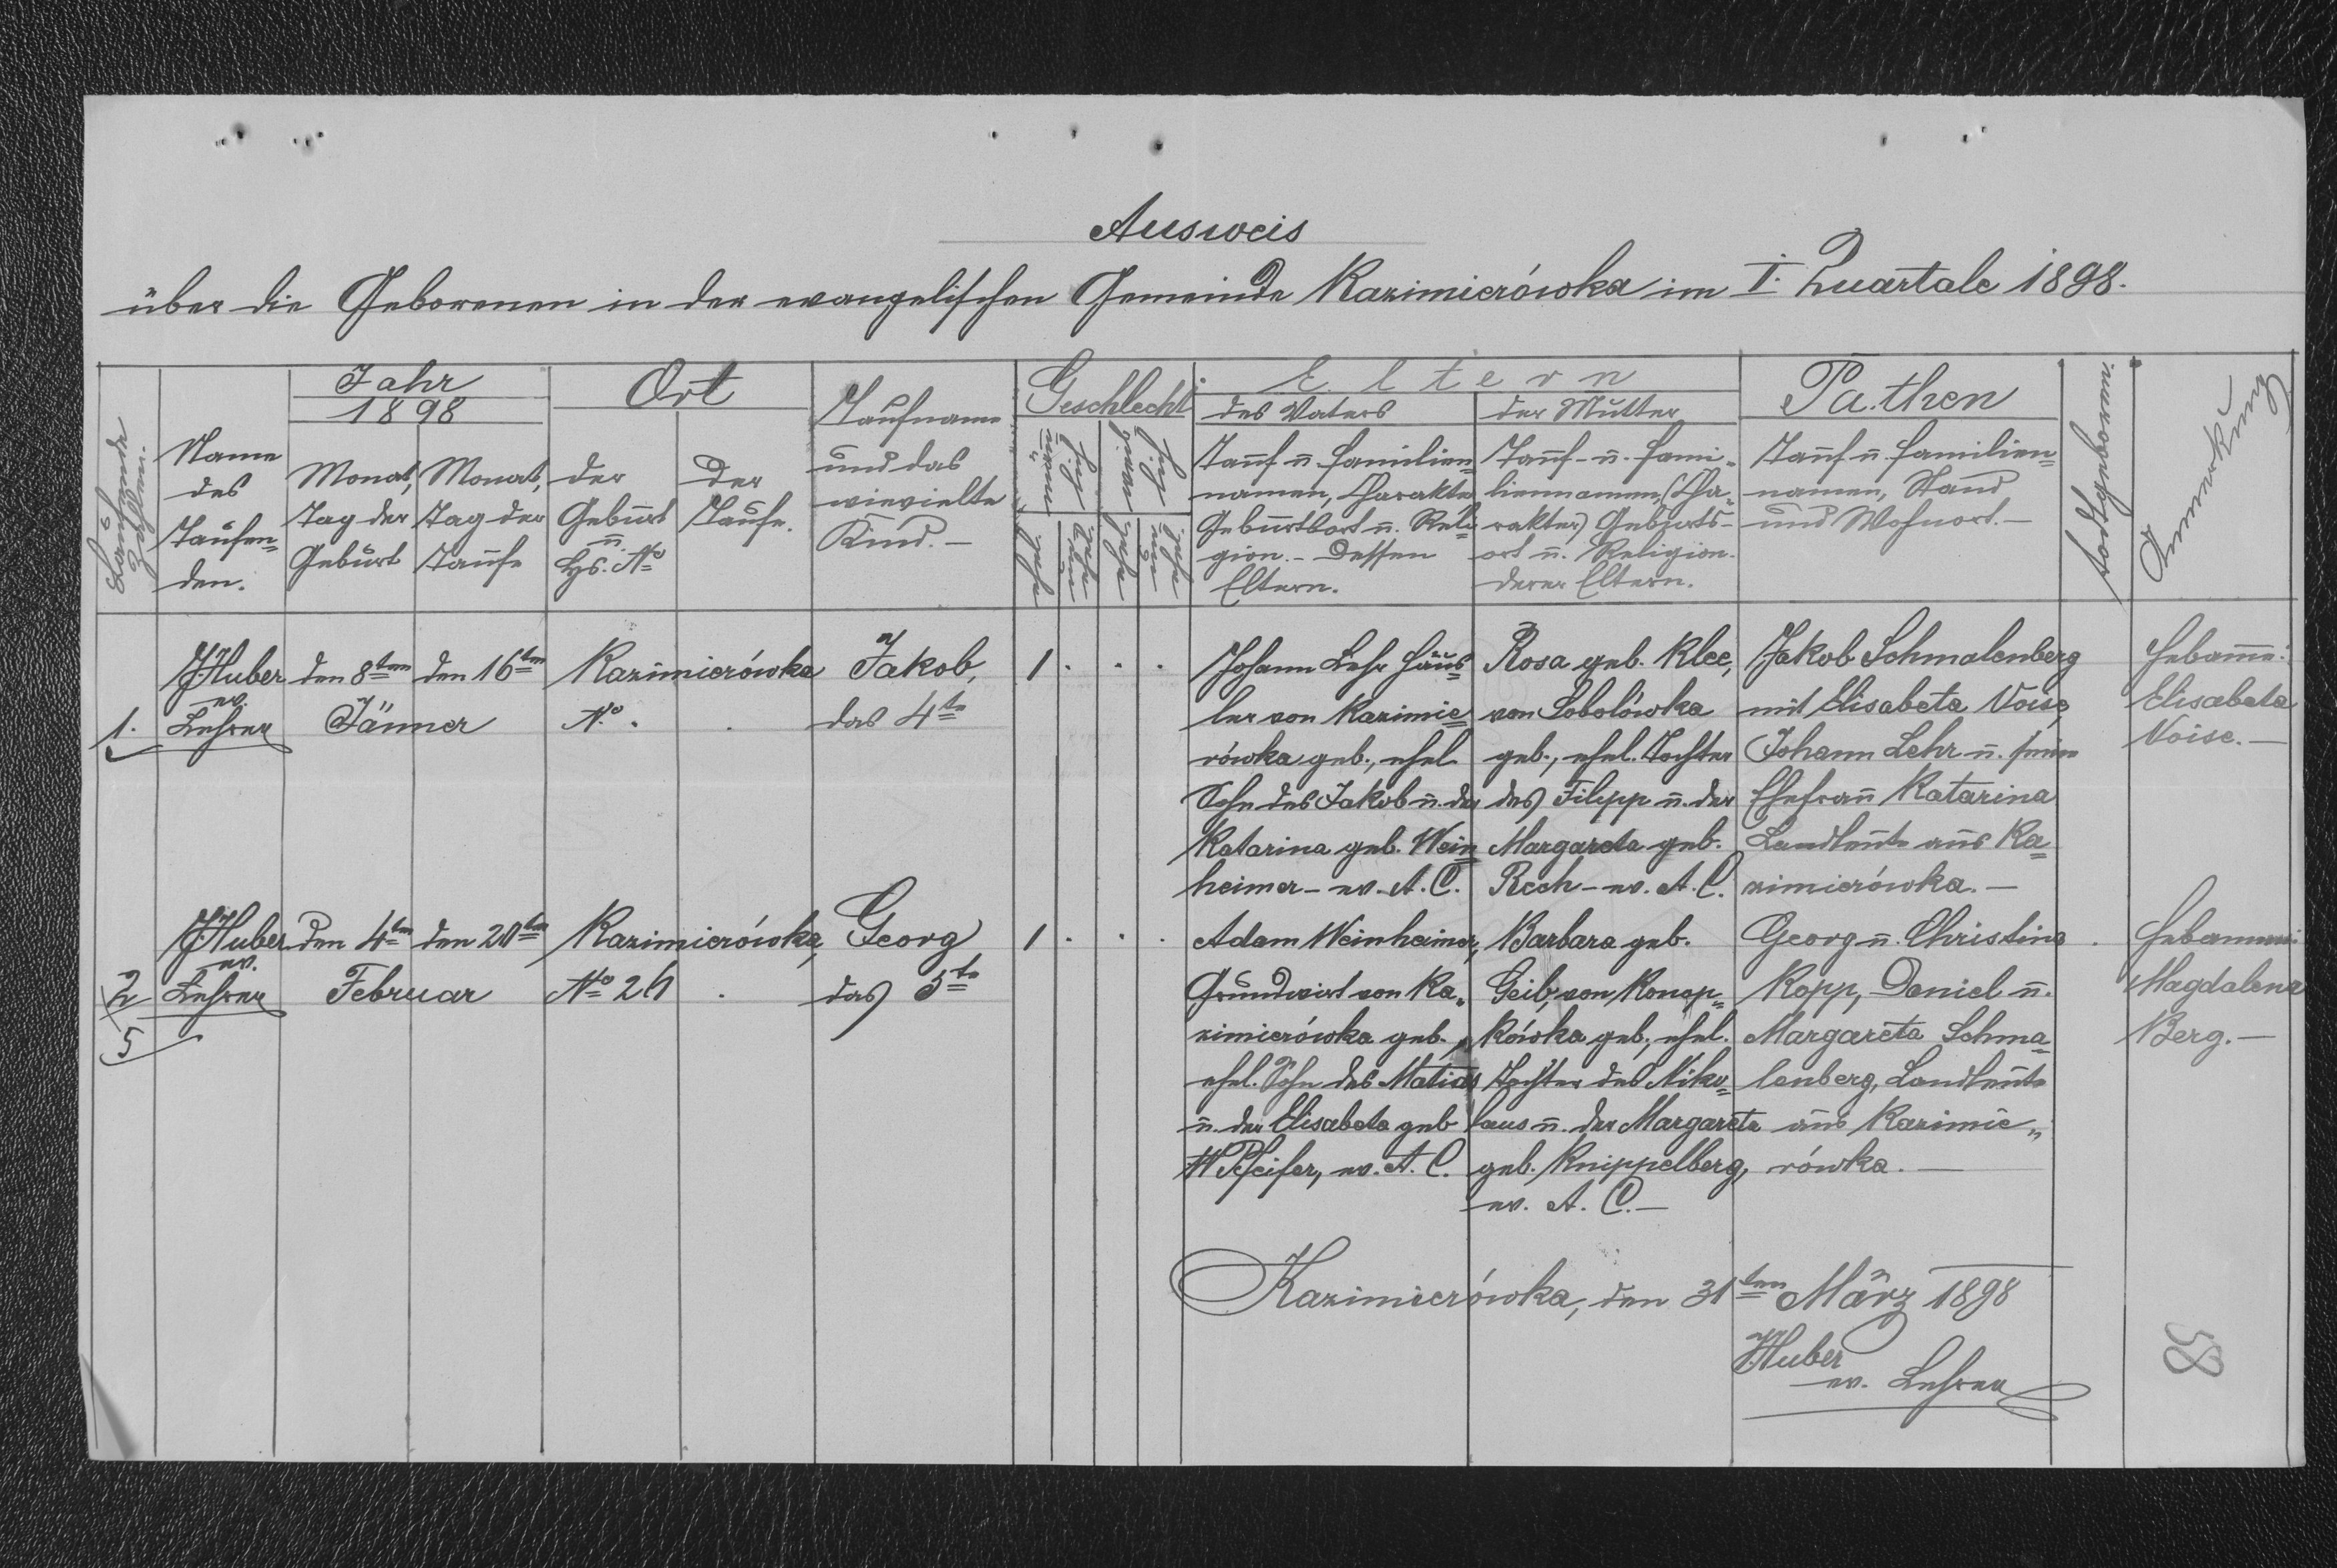 Ausweis
über die Geborenen in der evangelischen Gemeinde Kazimierówka im I. Quartale 1898.
Laufende Zahlen.
Name
des
Taufen=
den.
Jahr
1898
Monat,
Tag der
Geburt
Monat,
Tag der
Taufe
Ort
der
Geburt
u.
Hs. No
der
Taufe.
Taufname
und das
wievielte
Kind.—
Geschlecht
Eltern
des Vaters
Tauf u. Familien=
namen, Charakter
Geburtsort u. Reli=
gion.— Dessen
Eltern.
der Mutter
Tauf- u. Fami=
liennamen, (Cha=
rakter) Geburts-
ort u. Religion.
derer Eltern.
Pathen
Tauf u. Familien=
namen, Stand
und Wohnort.—
Todtgeboren.
Anmerkung
1.
J. Huber
ev.
Lehrer
den 8ten
den 16ten
Jänner
Kazimierówka
No .
.
Jakob,
das 4te
1 . . .
Johann Lehr Häus=
ler von Kazimie=
rówka geb., ehel.
Sohn des Jakob u. der
Katarina geb. Wein=
heimer – ev. A. C.
Rosa geb. Klee,
von Sobolówka
geb., ehel. Tochter
des Filipp u. der
Margareta geb.
Rech – ev. A. C.
Jakob Schmalenberg
mit Elisabeta Voise,
Johann Lehr u. seine
Ehefrau Katarina
Landleute aus Ka=
zimierówka.—
Hebamme:
Elisabeta
Voise.—
2
5
J. Huber
ev.
Lehrer
den 4ten
den 20ten
Februar
Kazimierówka,
No 26 .
Georg
das 5te
1 . . .
Adam Weinheimer,
Grundwirt von Ka=
zimierówka geb.,
ehel. Sohn des Matias
u. der Elisabeta geb.
Pfeifer, ev. A. C.
Barbara geb.
Geib, von Konop=
kówka geb., ehel.
Tochter des Niko=
laus u. der Margareta
geb. Knippelberg,
ev. A. C.—
Georg u. Christina
Kopp, Daniel u.
Margareta Schma=
lenberg, Landleute
aus Kazimie=
rówka.—
.
Hebamme:
Magdalena
Berg.—
Kazimierówka, den 31ten März 1898
J. Huber
ev. Lehrer